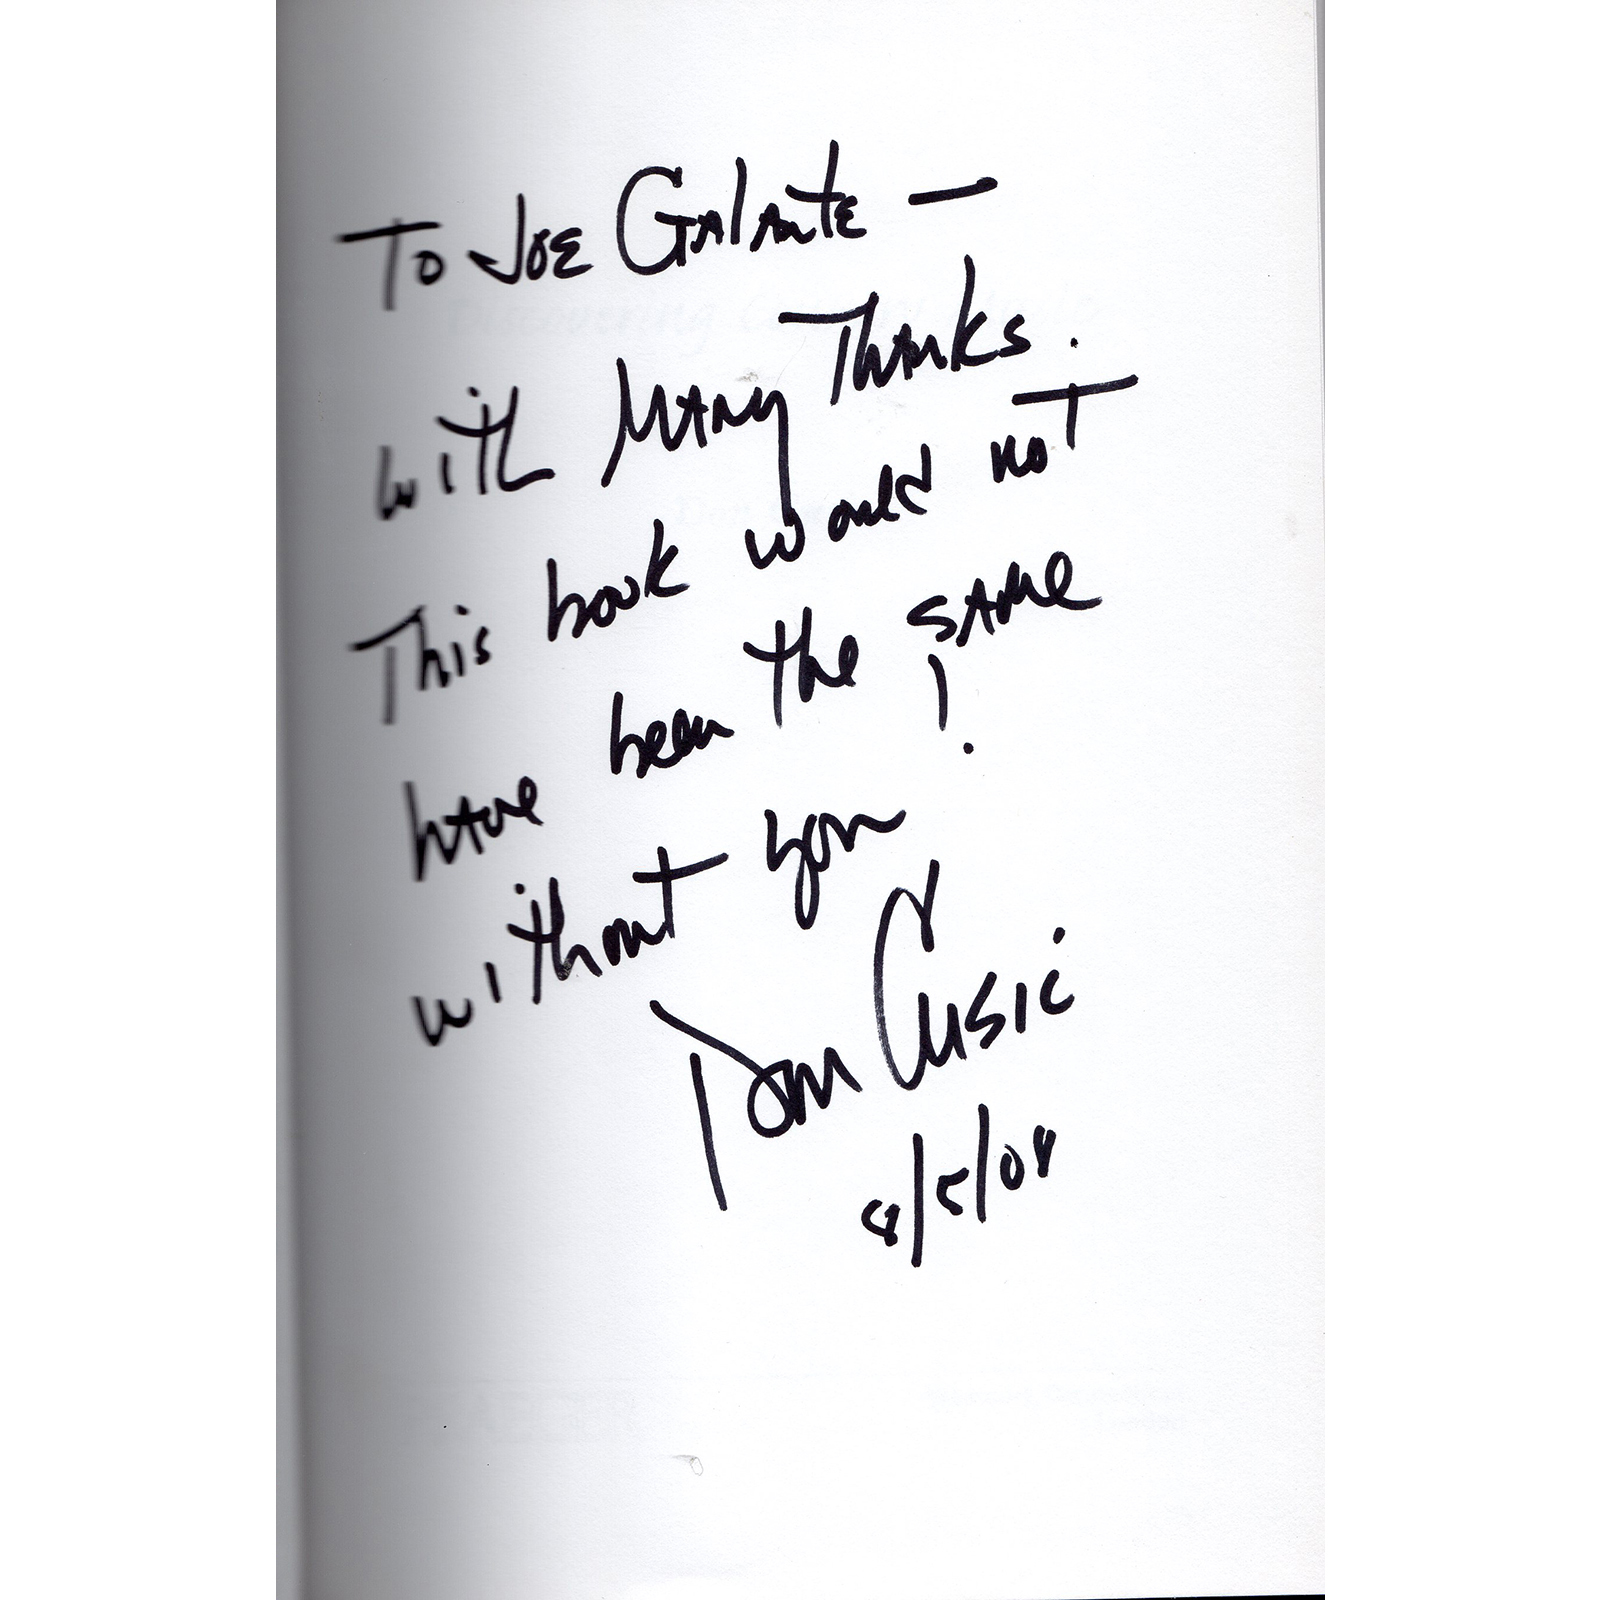 To Joe Galante —
with Many Thanks.
This book would not
have been the same
without you!
Don Cusic
8/5/08